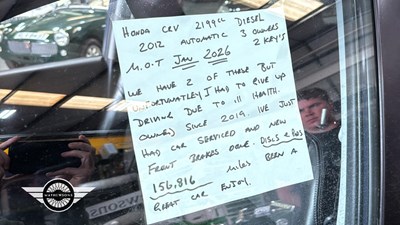 HONDA CRV 2199cc DIESEL
2012 AUTOMATIC 3 OWNERS
2 KEY'S
M.O.T JAN 2026
WE HAVE 2 OF THESE BUT
UNFORTUNATLEY I HAD TO GIVE UP
DRIVING DUE TO ill HEALTH.
OWNED SINCE 2019. IVE JUST
HAD CAR SERVICED AND NEW
FRONT BRAKES DONE. DISCS & PADS
156,816 miles BEEN A
GREAT CAR ENJOY.
MATHEWSONS